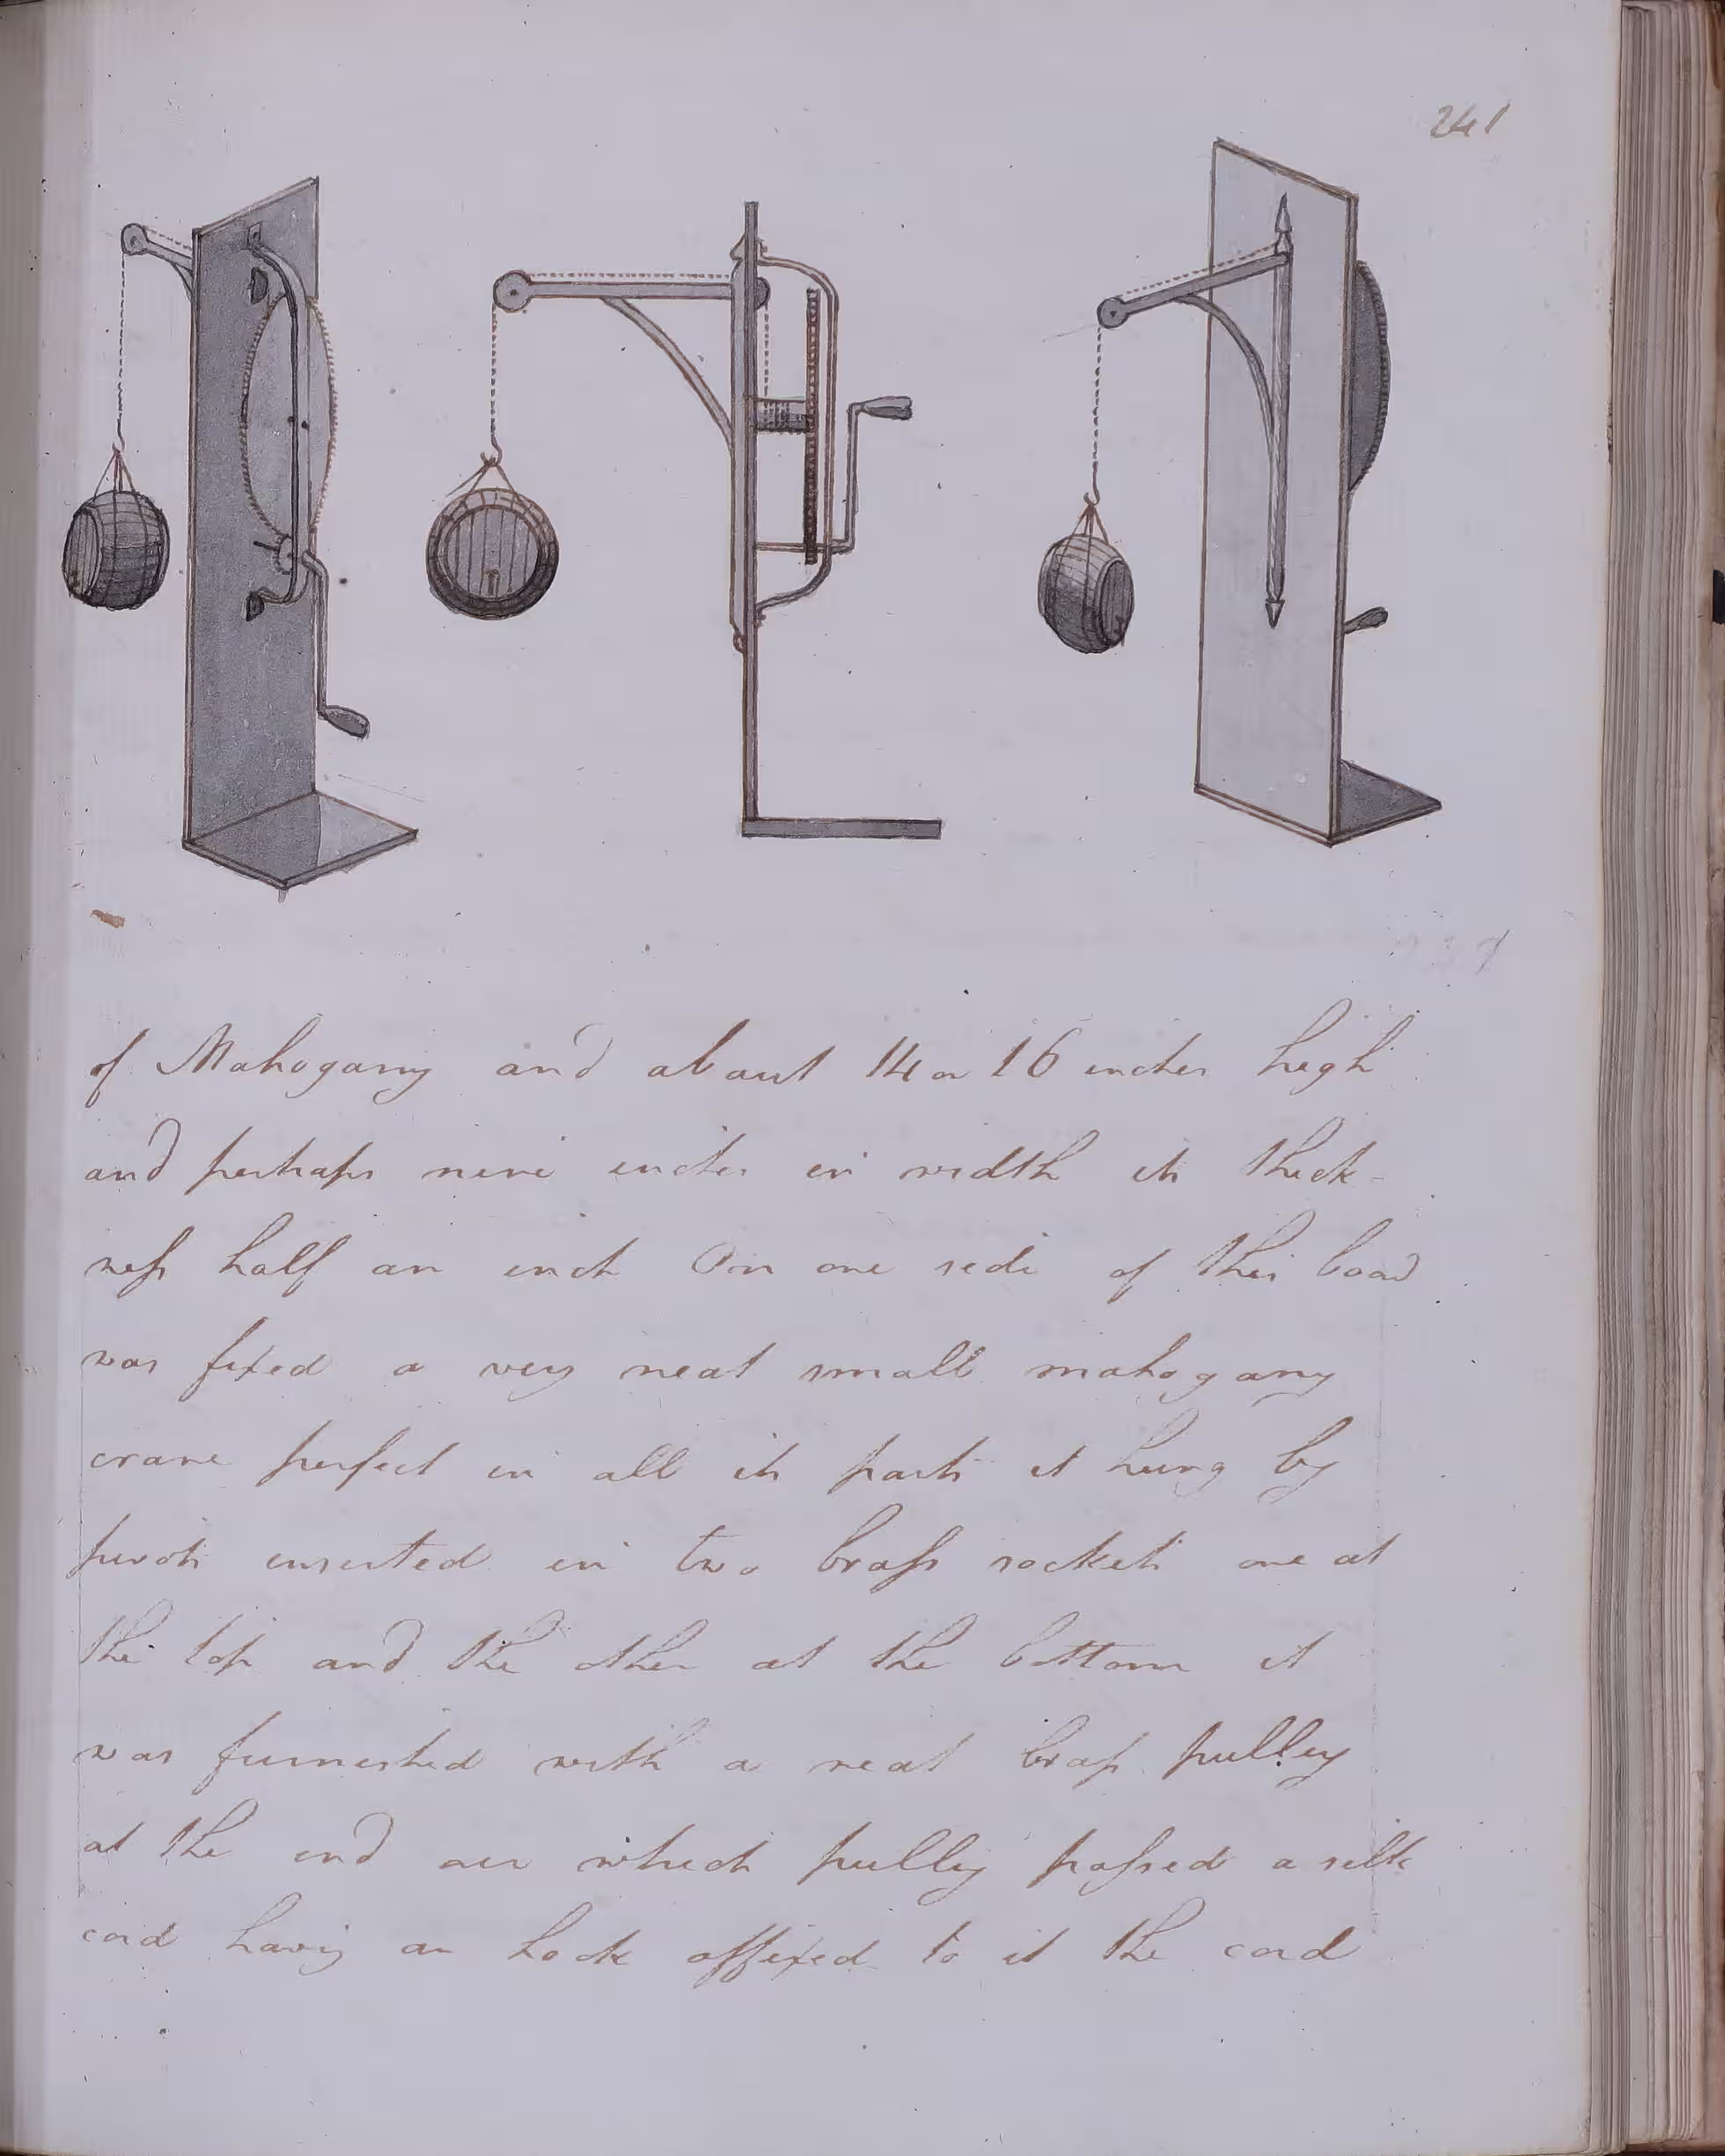 241
of Mahogany and about 14 or 16 inches high
and perhaps nine inches in width its thick-
ness half an inch On one side of this board
was fixed a very neat small mahogany
crane perfect in all its parts it hung by
pivots inserted in two brass sockets one at
the top and the other at the bottom it
was furnished with a neat brass pulley
at the end over which pulley passed a silk
cord having an hook affixed to it the cord